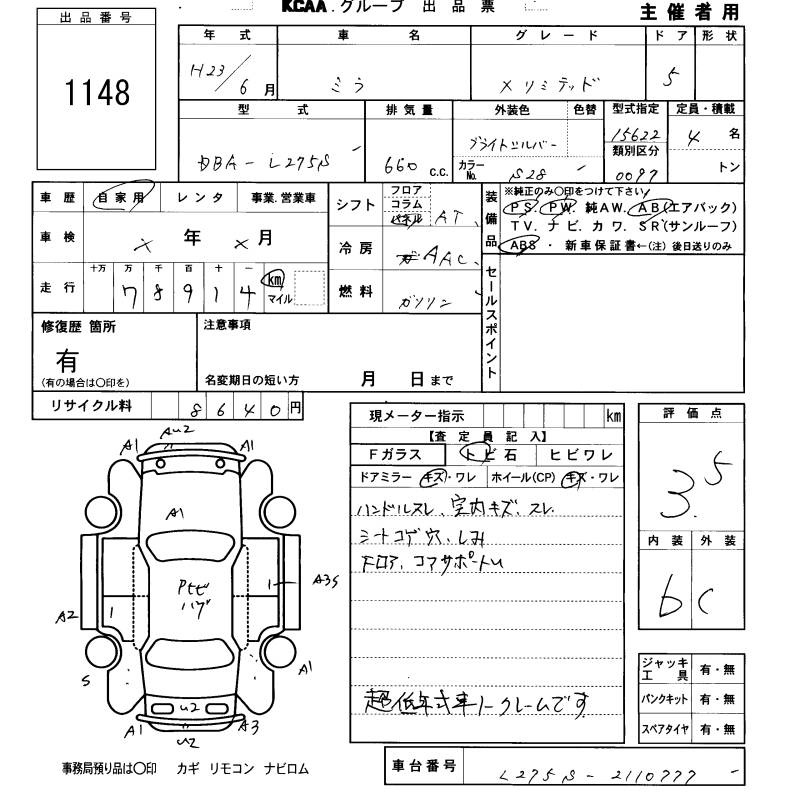 KCAA.グループ 出品票
主催者用
出品番号
1148
年式 車名 グレード ドア 形状
H23/6月 ミラ Xリミテッド 5
型式 排気量 外装色 色替 型式指定 定員・積載
DBA-L275S 660 c.c. ブライトシルバー 15622 4名
カラーNo. S28 類別区分 0097 トン
車歴 自家用 レンタ 事業.営業車
車検 × 年 × 月
走行 十万 万 千 百 十 一 km マイル
7 8 9 1 4
シフト フロア コラム パネル AT
冷房 AAC
燃料 ガソリン
装備品 ※純正のみ○印をつけて下さい
PS. PW. 純AW. AB(エアバック)
TV. ナビ. カワ. SR(サンルーフ)
ABS ・ 新車保証書←(注) 後日送りのみ
セールスポイント
修復歴 箇所
有
(有の場合は○印を)
注意事項
名変期日の短い方 月 日まで
リサイクル料 8640円
現メーター指示 km
【査定員記入】
Fガラス トビ石 ヒビワレ
ドアミラー キズ・ワレ ホイール(CP) キズ・ワレ
ハンドルスレ、室内キズ、スレ
シートコゲ穴、しみ
フロア、コアサポートU
超低年式車ノークレームです
評価点
3.5
内装 外装
b C
ジャッキ工具 有・無
パンクキット 有・無
スペアタイヤ 有・無
AU2
A1 A1
A1
Pヒビ
ハゲ
1 1
A3S
A2
S A1
U2
A1 A3
U2
事務局預り品は○印 カギ リモコン ナビロム
車台番号 L275S-2110777